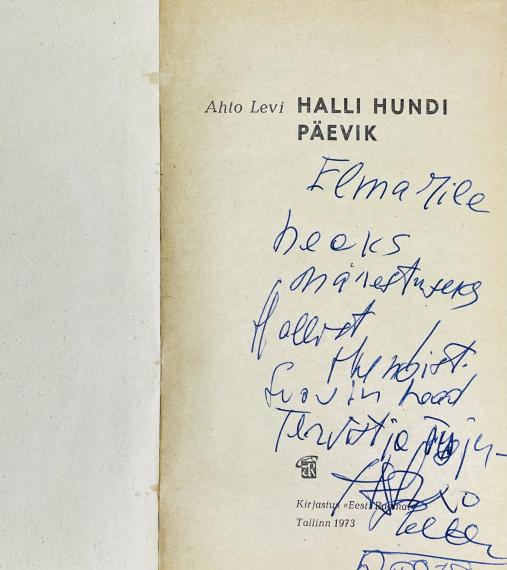 Ahto Levi HALLI HUNDI
PÄEVIK
Elmarile
heaks
mälestuseks
Hallist
Hundist.
Soovin head
Tervist ja
Kirjastus «Eesti Raamat»
Tallinn 1973